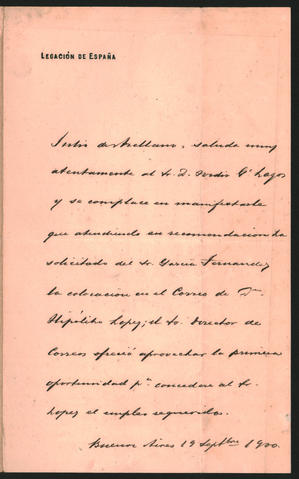 LEGACIÓN DE ESPAÑA
Julio de Arellano, saluda muy
atentamente al Sr. D. Gª Lagos
y se complace en manifestarle
que atendiendo su recomendacion ha
solicitado del Sr. García Fernandez
la colocacion en el Correo de Dn.
Hipólito Lopez; el Sr. Director de
Correos ofreció aprovechar la primera
oportunidad pª conceder al Sr.
Lopez el empleo requerido.
Buenos Aires 19 Septbre 1900.